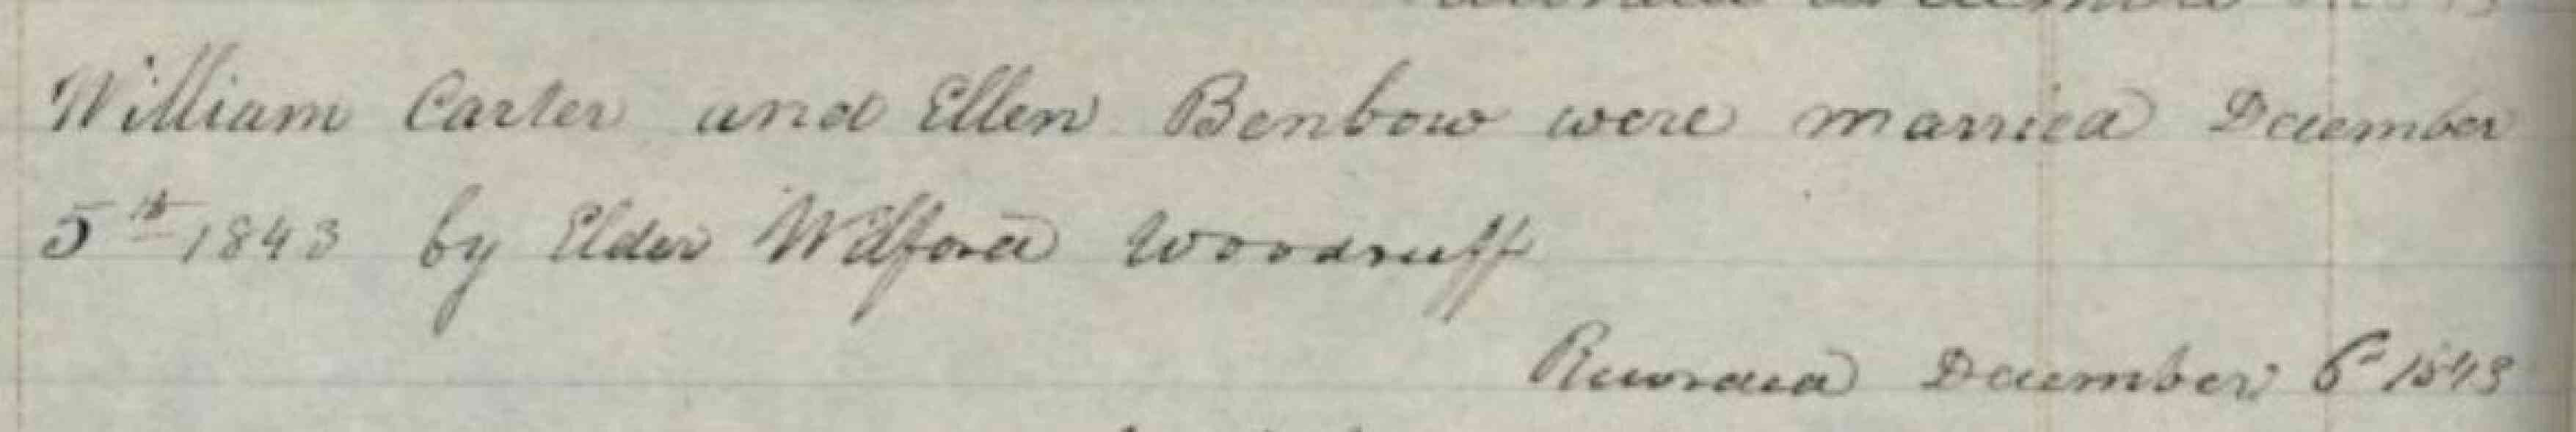 William Carter and Ellen Benbow were married December
5th 1843 by Elder Wilford Woodruff
Recorded December 6th 1843